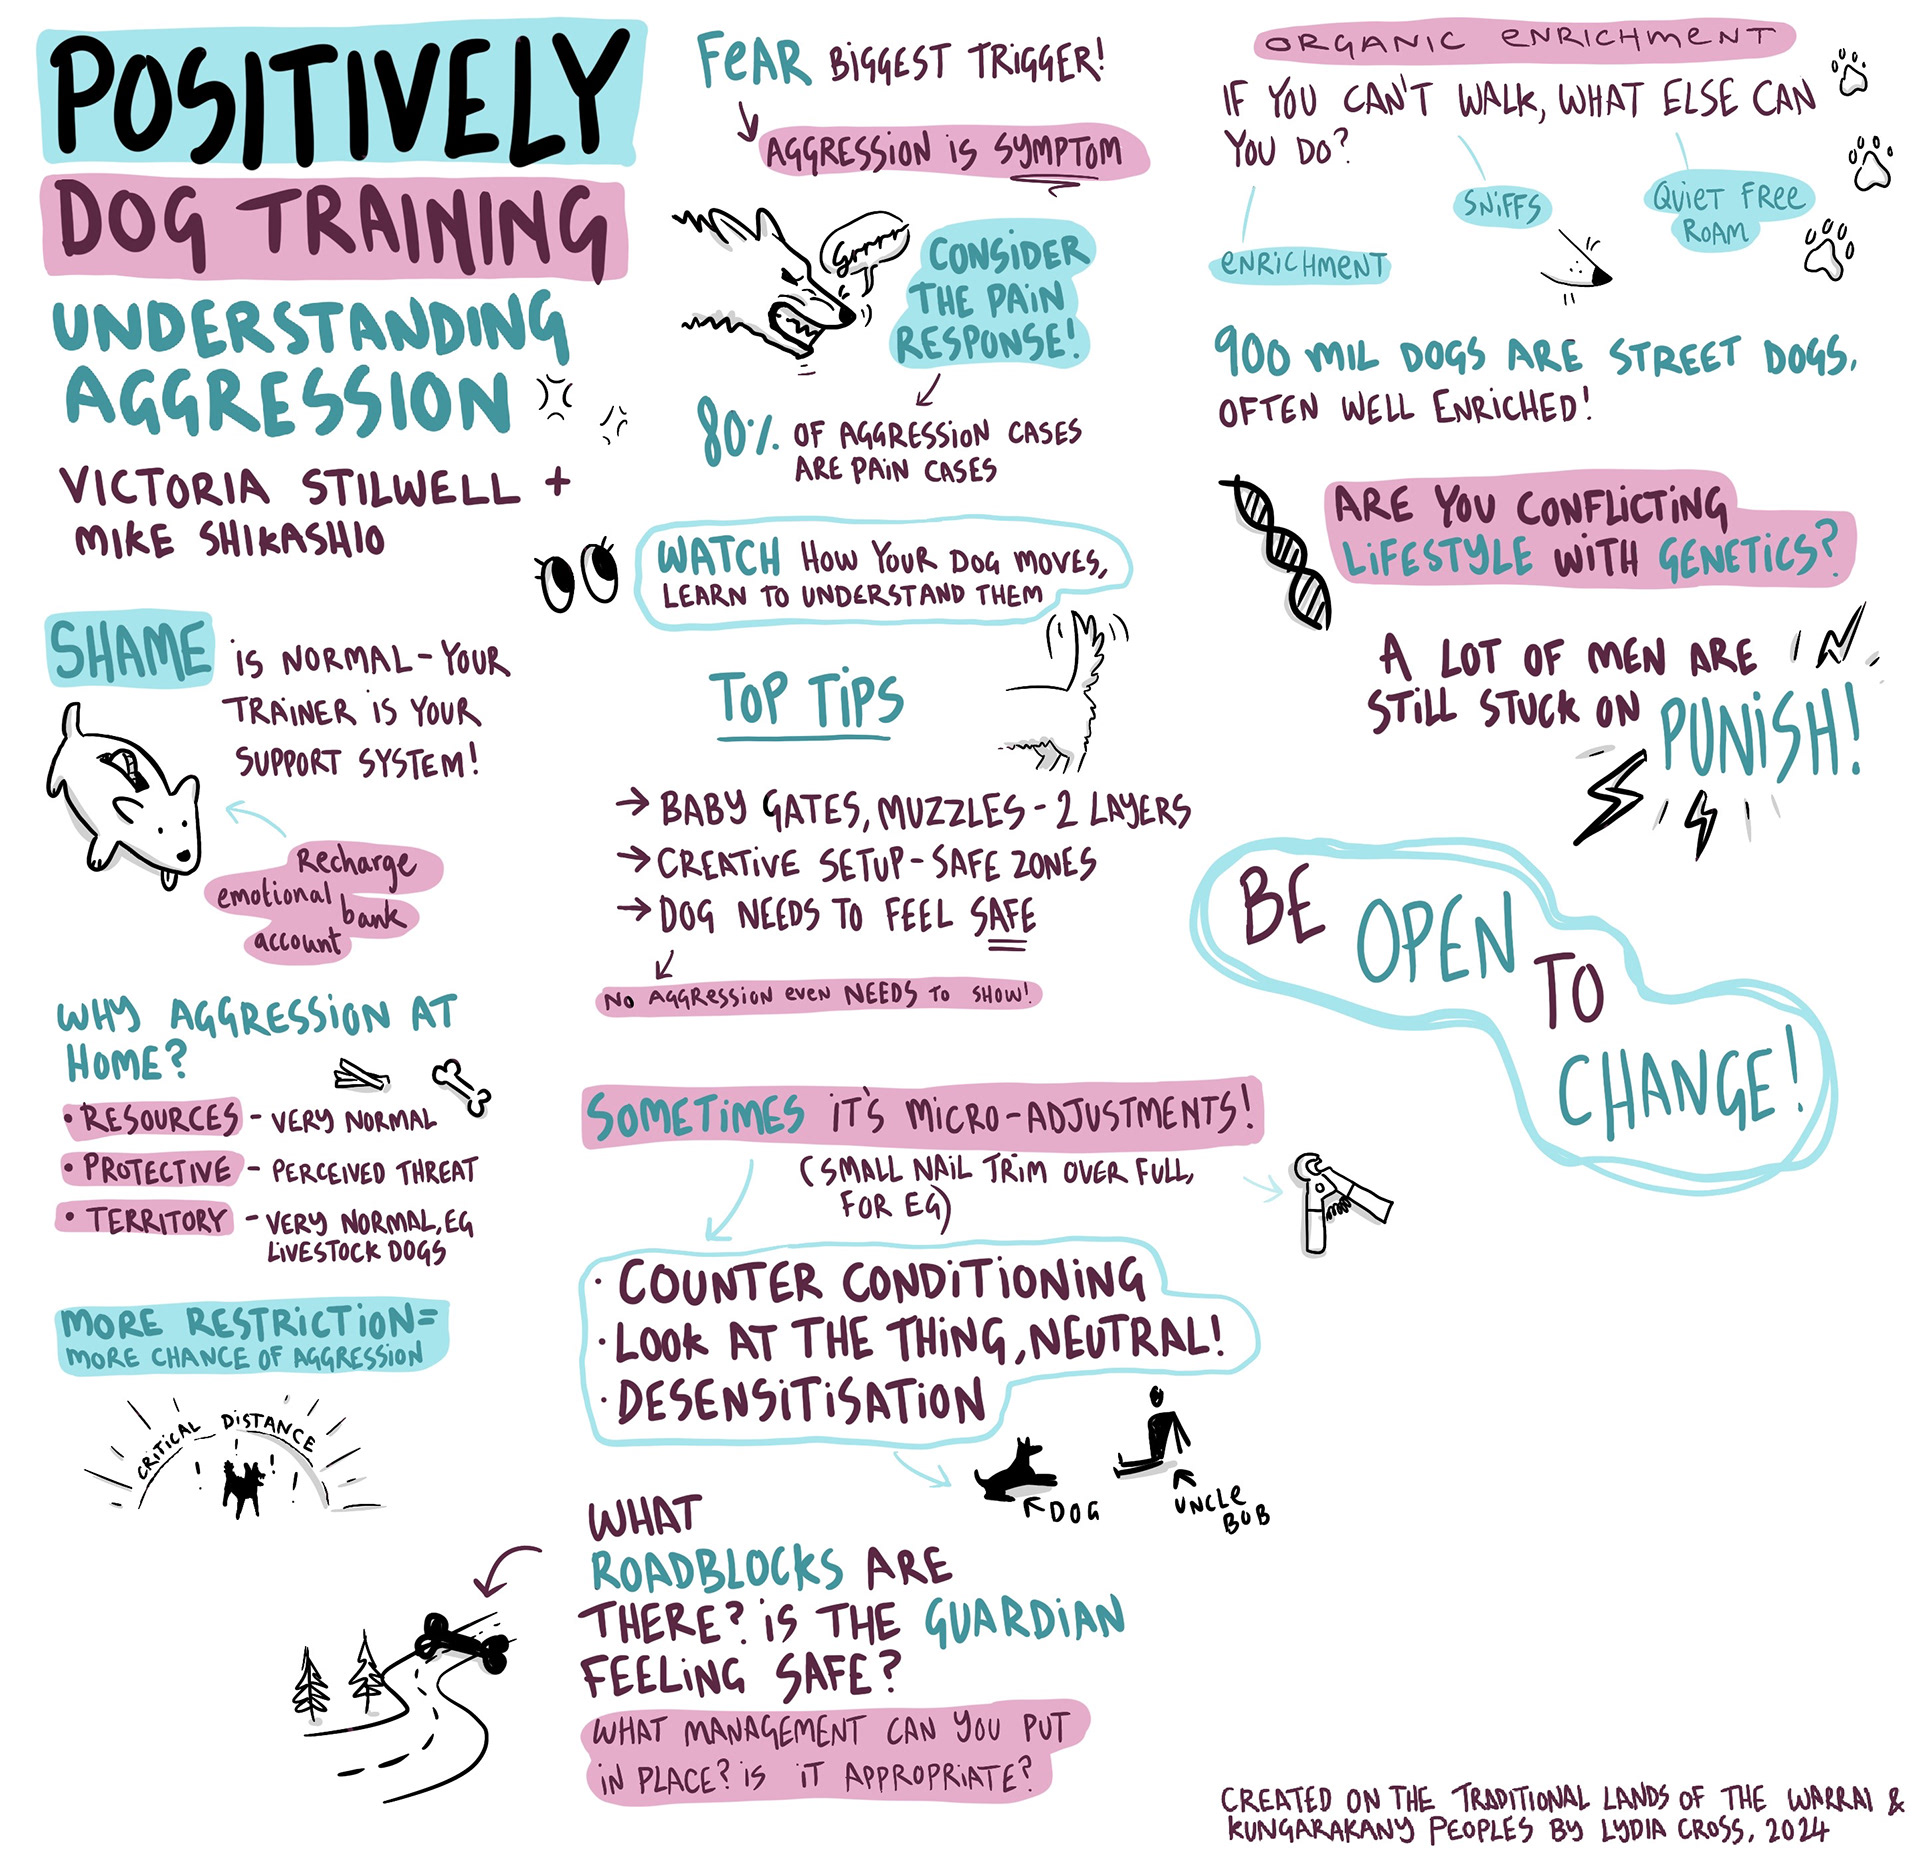 POSITIVELY
DOG TRAINING
UNDERSTANDING
AGGRESSION
VICTORIA STILWELL +
MIKE SHIKASHIO
SHAME IS NORMAL - YOUR
TRAINER IS YOUR
SUPPORT SYSTEM!
Recharge
emotional
bank
account
WHY AGGRESSION AT
HOME?
• RESOURCES - VERY NORMAL
• PROTECTIVE - PERCEIVED THREAT
• TERRITORY - VERY NORMAL, EG
LIVESTOCK DOGS
MORE RESTRICTION =
MORE CHANCE OF AGGRESSION
CRITICAL DISTANCE
FEAR BIGGEST TRIGGER!
AGGRESSION IS SYMPTOM
Grrrr
CONSIDER
THE PAIN
RESPONSE!
80% OF AGGRESSION CASES
ARE PAIN CASES
WATCH HOW YOUR DOG MOVES,
LEARN TO UNDERSTAND THEM
TOP TIPS
→ BABY GATES, MUZZLES - 2 LAYERS
→ CREATIVE SETUP - SAFE ZONES
→ DOG NEEDS TO FEEL SAFE
NO AGGRESSION EVEN NEEDS TO SHOW!
SOMETIMES IT'S MICRO-ADJUSTMENTS!
(SMALL NAIL TRIM OVER FULL,
FOR EG)
• COUNTER CONDITIONING
• LOOK AT THE THING, NEUTRAL!
• DESENSITISATION
DOG
UNCLE
BOB
WHAT
ROADBLOCKS ARE
THERE? IS THE GUARDIAN
FEELING SAFE?
WHAT MANAGEMENT CAN YOU PUT
IN PLACE? IS IT APPROPRIATE?
ORGANIC ENRICHMENT
IF YOU CAN'T WALK, WHAT ELSE CAN
YOU DO?
SNIFFS
QUIET FREE
ROAM
ENRICHMENT
900 MIL DOGS ARE STREET DOGS,
OFTEN WELL ENRICHED!
ARE YOU CONFLICTING
LIFESTYLE WITH GENETICS?
A LOT OF MEN ARE
STILL STUCK ON PUNISH!
BE OPEN
TO
CHANGE!
CREATED ON THE TRADITIONAL LANDS OF THE WARRAI &
KUNGARAKANY PEOPLES BY LYDIA CROSS, 2024